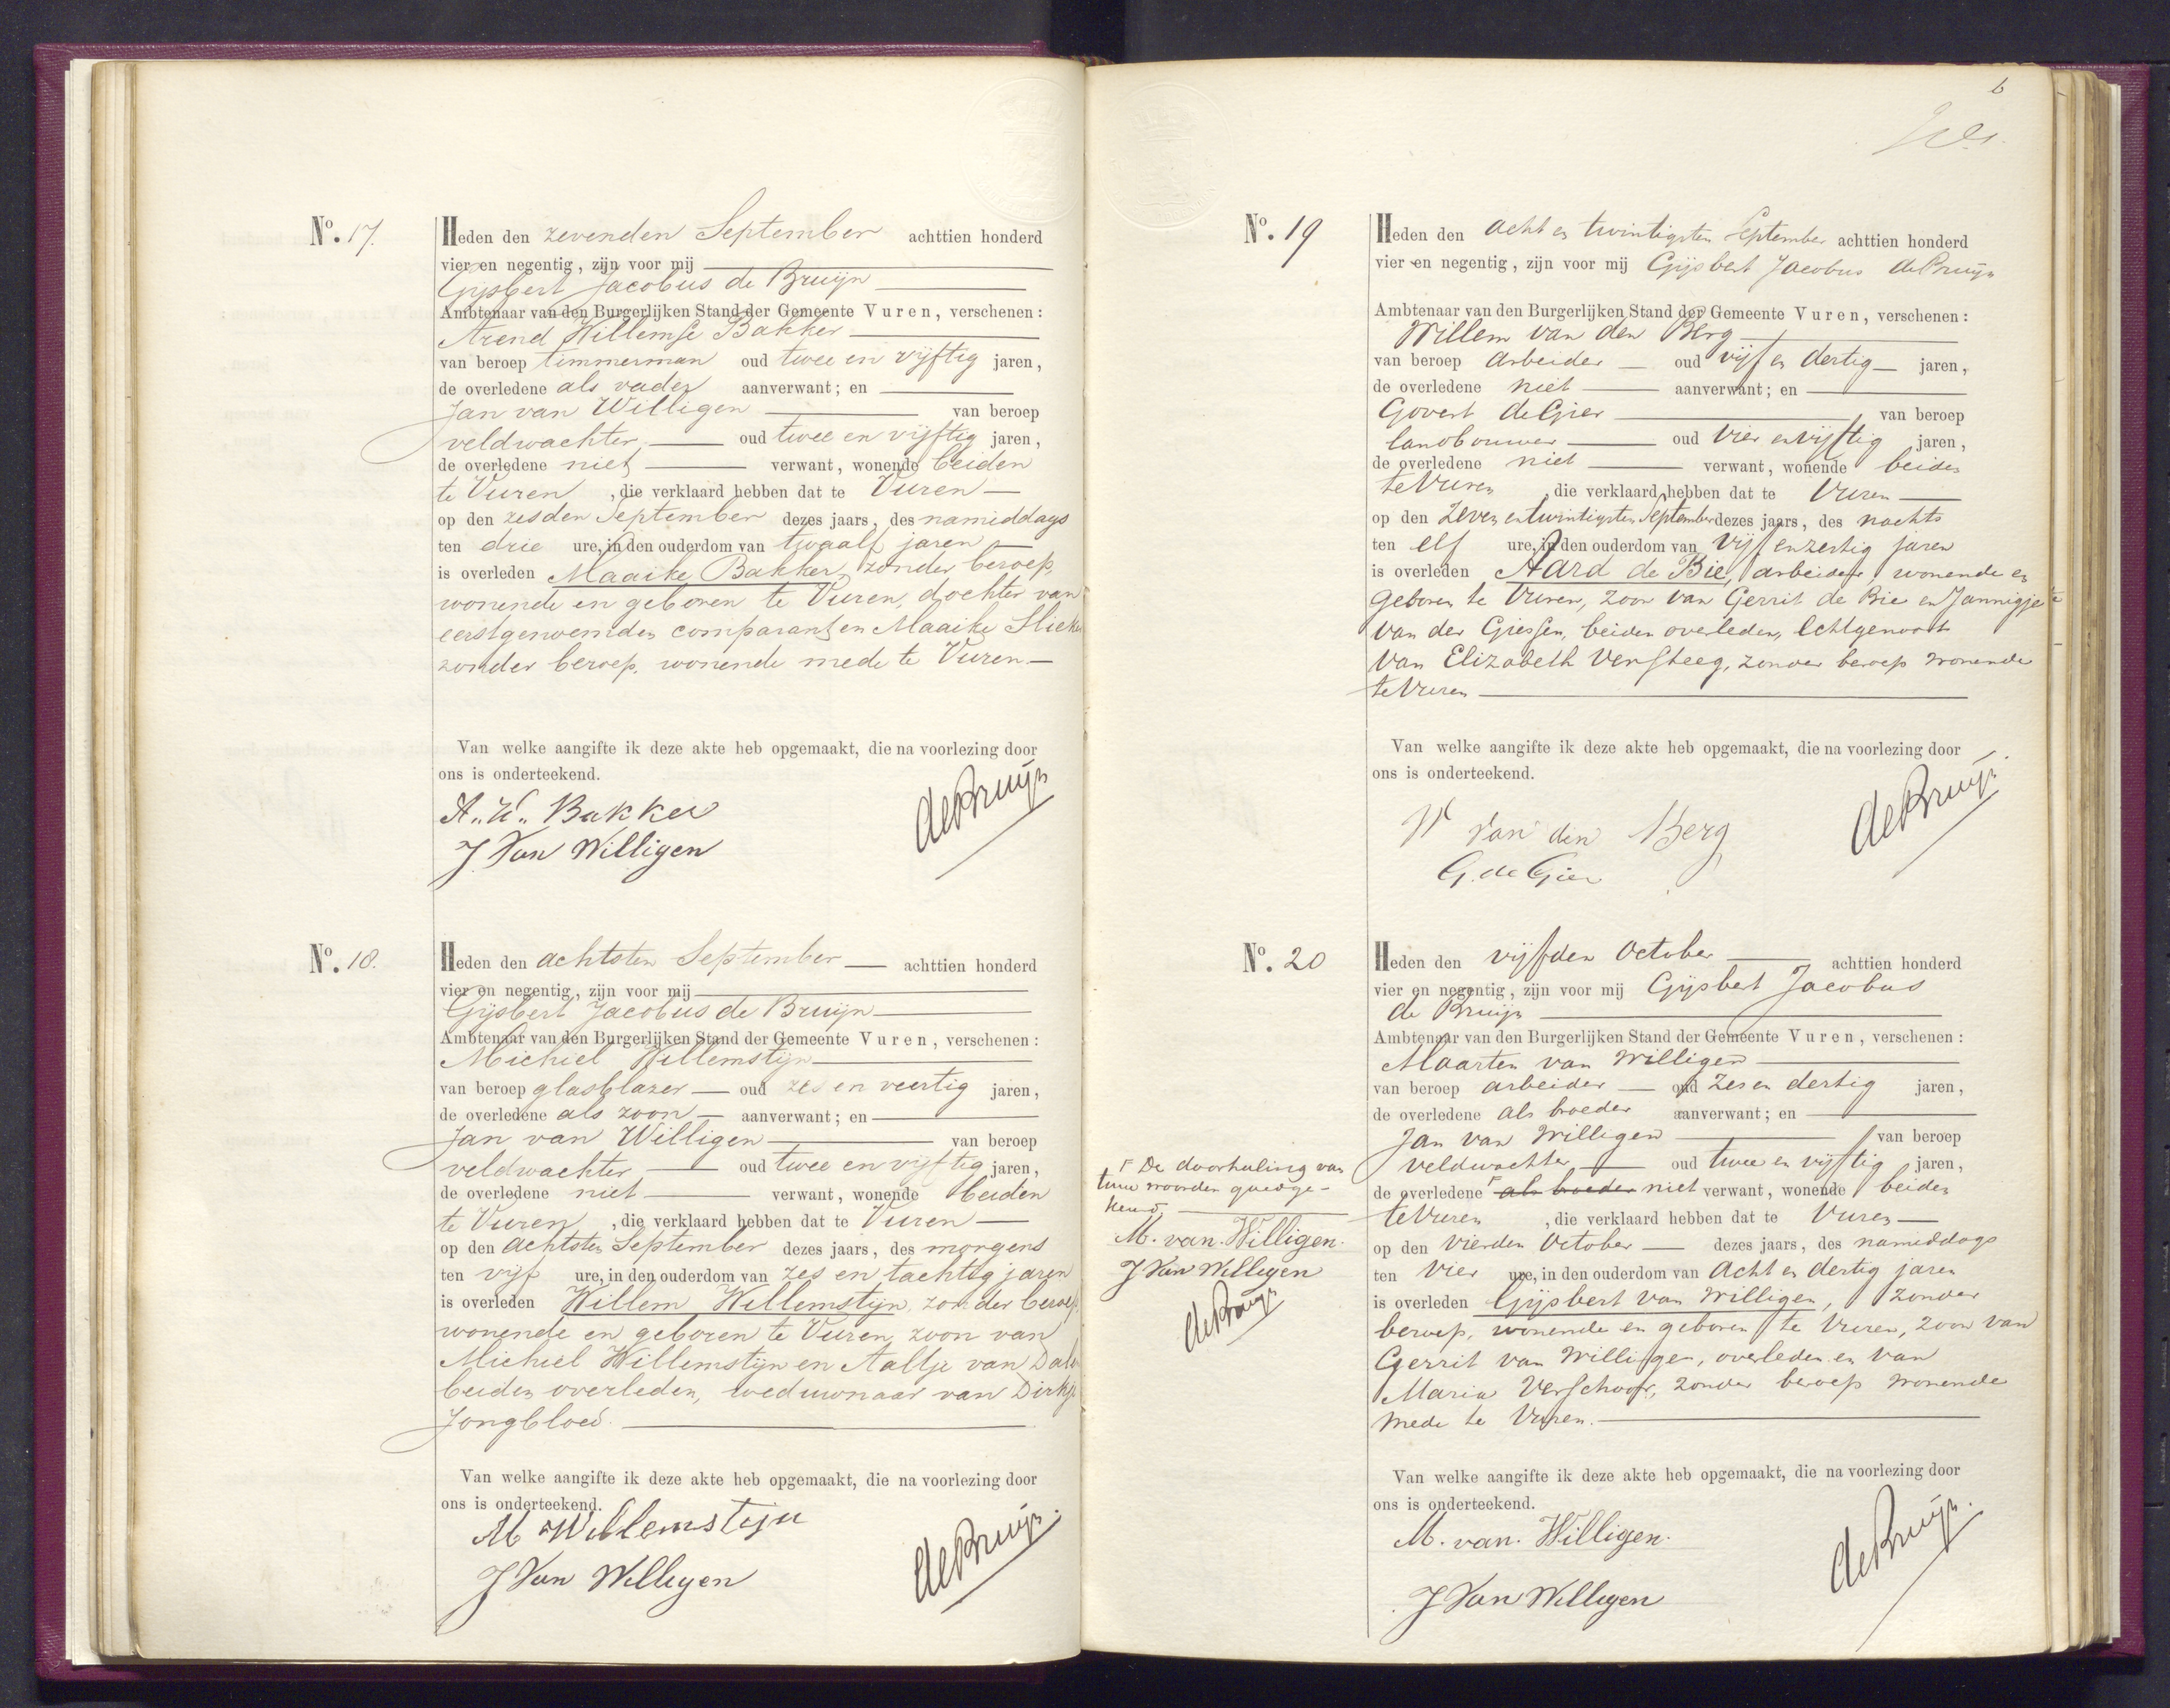 No. 17.
Heden den zevenden September achttien honderd
vier en negentig, zijn voor mij
Gijsbert Jacobus de Bruijn
Ambtenaar van den Burgerlijken Stand der Gemeente Vuren, verschenen:
Arend Willemse Bakker
van beroep timmerman oud twee en vijftig jaren,
de overledene als vader aanverwant; en
Jan van Willigen van beroep
veldwachter, oud twee en vijftig jaren,
de overledene niet verwant, wonende beiden
te Vuren, die verklaard hebben dat te Vuren
op den zesden September dezes jaars, des namiddags
ten drie ure, in den ouderdom van twaalf jaren
is overleden Maaike Bakker, zonder beroep,
wonende en geboren te Vuren, dochter van
eerstgenoemden comparant en Maaike
zonder beroep, wonende mede te Vuren.
Van welke aangifte ik deze akte heb opgemaakt, die na voorlezing door
ons is onderteekend.
A. W. Bakker
J. Van Willigen
de Bruijn
No. 18.
Heden den achtsten September achttien honderd
vier en negentig, zijn voor mij
Gijsbert Jacobus de Bruijn
Ambtenaar van den Burgerlijken Stand der Gemeente Vuren, verschenen:
Michiel Willemstijn
van beroep glasblazer oud zes en veertig jaren,
de overledene als zoon aanverwant; en
Jan van Willigen van beroep
veldwachter, oud twee en vijftig jaren,
de overledene niet verwant, wonende beiden
te Vuren, die verklaard hebben dat te Vuren
op den achtsten September dezes jaars, des morgens
ten vijf ure, in den ouderdom van zes en tachtig jaren
is overleden Willem Willemstijn, zonder beroep,
wonende en geboren te Vuren, zoon van
Michiel Willemstijn en Aaltje van
beiden overleden, weduwnaar van Dirkje
Jongbloed.
Van welke aangifte ik deze akte heb opgemaakt, die na voorlezing door
ons is onderteekend.
M Willemstijn
J Van Willigen
de Bruijn
6
No. 19
Heden den acht en twintigsten September achttien honderd
vier en negentig, zijn voor mij Gijsbert Jacobus de Bruijn
Ambtenaar van den Burgerlijken Stand der Gemeente Vuren, verschenen:
Willem van den Berg
van beroep arbeider oud vijf en dertig jaren,
de overledene niet aanverwant; en
Govert de Gier van beroep
landbouwer oud vier en vijftig jaren,
de overledene niet verwant, wonende beiden
te Vuren, die verklaard hebben dat te Vuren
op den zeven en twintigsten September dezes jaars, des nachts
ten elf ure, in den ouderdom van vijf en zestig jaren
is overleden Aard de Bie, arbeider, wonende en
geboren te Vuren, zoon van Gerrit de Bie en Jannigje
van der Giessen, beiden overleden, Echtgenoot
van Elizabeth Versteeg, zonder beroep wonende
te Vuren
Van welke aangifte ik deze akte heb opgemaakt, die na voorlezing door
ons is onderteekend.
W van den Berg
G. de Gier
de Bruijn
No. 20
Heden den vijfden October achttien honderd
vier en negentig, zijn voor mij Gijsbert Jacobus
de Bruijn
Ambtenaar van den Burgerlijken Stand der Gemeente Vuren, verschenen:
Maarten van Willigen
van beroep arbeider oud zes en dertig jaren,
de overledene als broeder aanverwant; en
Jan van Willigen van beroep
veldwachter oud twee en vijftig jaren,
de overledene als broeder niet verwant, wonende beiden
te Vuren, die verklaard hebben dat te Vuren
op den vierden October dezes jaars, des namiddags
ten vier ure, in den ouderdom van acht en dertig jaren
is overleden Gijsbert van Willigen, zonder
beroep, wonende en geboren te Vuren, zoon van
Gerrit van Willigen, overleden en van
Maria Verschoor, zonder beroep wonende
mede te Vuren.
De doorhaling van
twee woorden goedge-
keurd,
M. van Willigen.
J Van Willigen
de Bruijn
Van welke aangifte ik deze akte heb opgemaakt, die na voorlezing door
ons is onderteekend.
M. van. Willigen.
J Van Willigen
de Bruijn